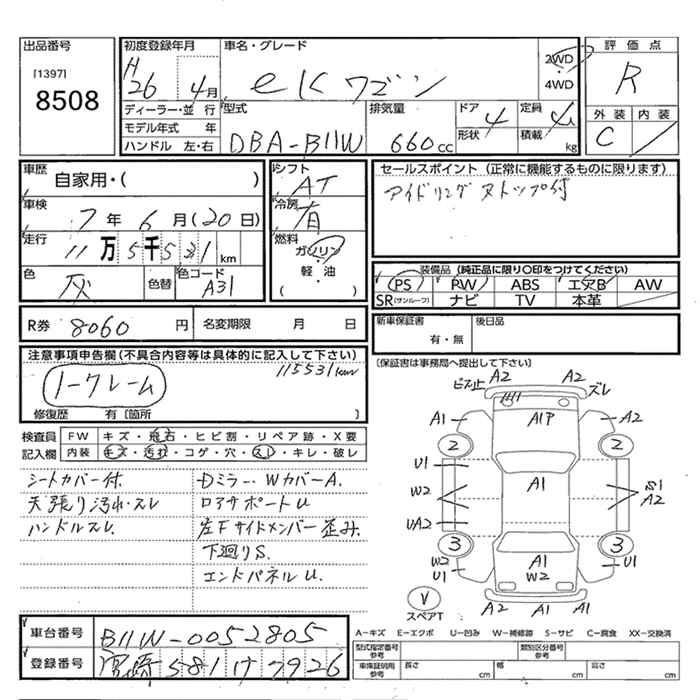 出品番号
[1397]
8508
初度登録年月
H26 4月
車名・グレード
eKワゴン
2WD
・
4WD
評価点
R
ディーラー・並行
モデル年式 年
ハンドル 左・右
型式
DBA-B11W
排気量
660cc
ドア
形状
4
定員
積載
4人
kg
外装 内装
C
車歴
自家用・( )
車検
7年6月(20日)
走行
11万5千531km
色
灰
色替
色コード
A31
シフト
AT
冷房
有
燃料
ガソリン
・
軽・油
( )
セールスポイント (正常に機能するものに限ります)
アイドリングストップ付
装備品 (純正品に限り○印をつけてください)
PS PW ABS エアB AW
SR(サンルーフ) ナビ TV 本革
R券 8060円 名変期限 月 日
新車保証書
有・無
後日品
注意事項申告欄(不具合内容等は具体的に記入して下さい)
115531km
ノークレーム
修復歴 有〔箇所 〕
〔保証書は事務局へ提出して下さい〕
検査員
記入欄
FW キズ・飛石・ヒビ割・リペア跡・X要
内装 キズ・汚れ・コゲ・穴・スレ・キレ・破レ
シートカバー付.
天張り汚れ・スレ
ハンドルスレ.
Dミラー・WカバーA.
ロアサポートU
左Fサイドメンバー歪み.
下廻りS.
エンドパネルU.
ビス止 A2 A2 ズレ
A1 A1P A2
2 2
U1
W2 A1 A2
UA2
3 3
W2
U1 A1
W2 U1
スペアT
A2 A1 A1
A-キズ E-エクボ U-凹み W-補修跡 S-サビ C-腐食 XX-交換済
車台番号
B11W-0052805
登録番号
581 け 7926
型式指定番号
参考
類別区分番号
参考
車庫証明用
参考
長さ cm 幅 cm 高さ cm